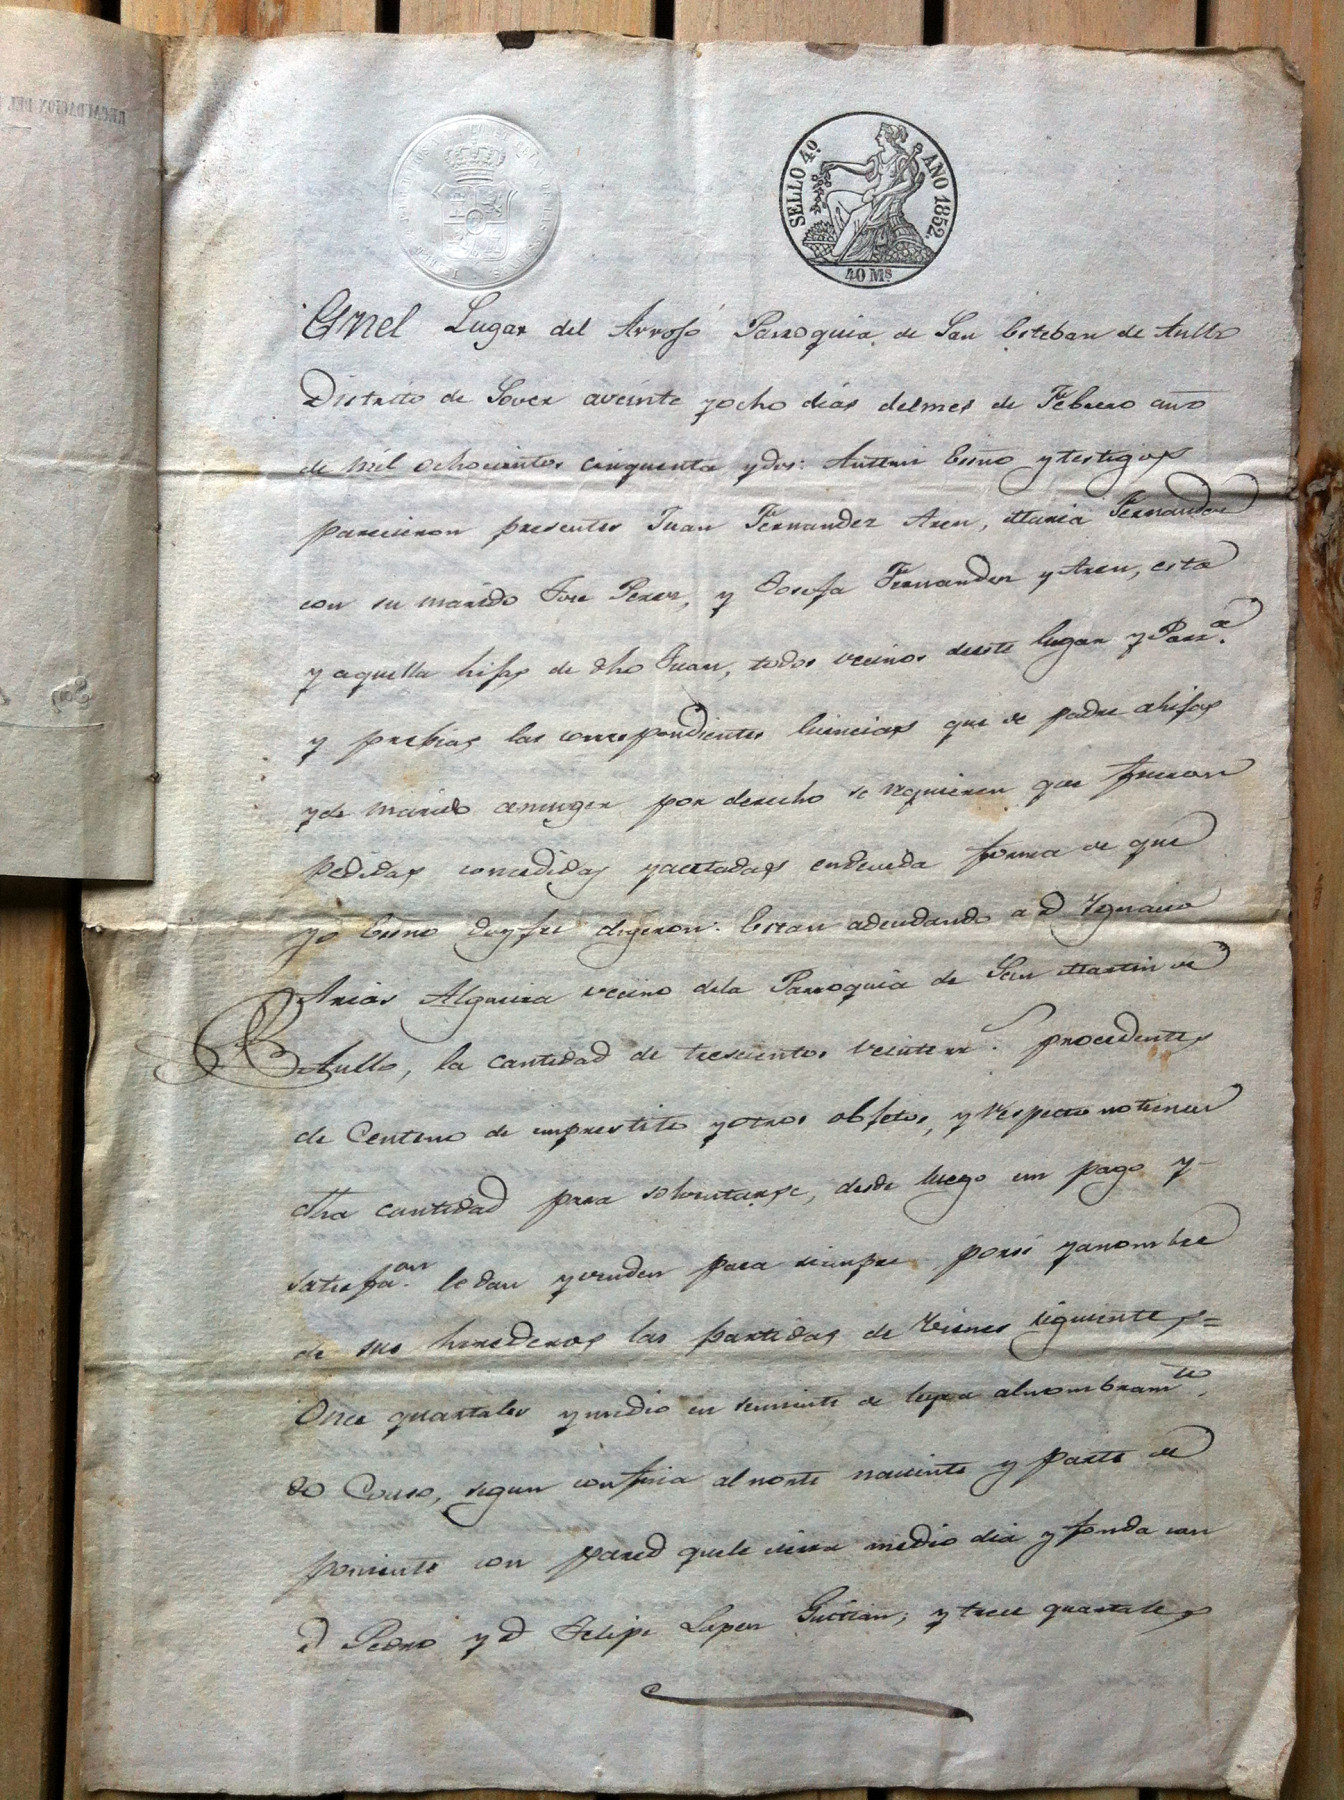 SELLO 4º AÑO 1852.
40 Ms
Enel Lugar del Arrojo Parroquia de San Esteban de Anllo
Distrito de Sover aveinte yocho dias delmes de Febrero año
de mil ochocientos cinquenta ydos: Antemi Essno ytestigos
parecieron presentes Juan Fernandez Aren, Maria Fernandez
con su marido Jose Perez, y Josefa Fernandez y Aren, esta
y aquella hijas de dho Juan, todos vecinos deeste lugar y Parrª.
y prebias las correspondientes licencias que de padre ahijas
yde marido amuger por derecho se requieren que fueron
pedidas concedidas yacetadas endevida forma de que
yo Essno doyfee digeron: Estan adeudando a D Ygnacio
Arias Algueira vecino dela Parroquia de San Martin de
Anllo, la cantidad de trescientos veinte rr. procedentes
de Centeno de imprestito yotros objetos, y respecto notienen
dha cantidad para solventarse, desde luego en pago y
satisfaon. ledan yvenden para siempre porsi yanombre
de sus herederos las partidas de vienes siguientes=
Once quartales ymedio en semiente de leyra alnombramto.
do Couso, segun confina al norte naciente y parte de
poniente con pared quele cierra medio dia y fonda con
D Pedro y D Felipe Lopez Guitian; y trece quartales